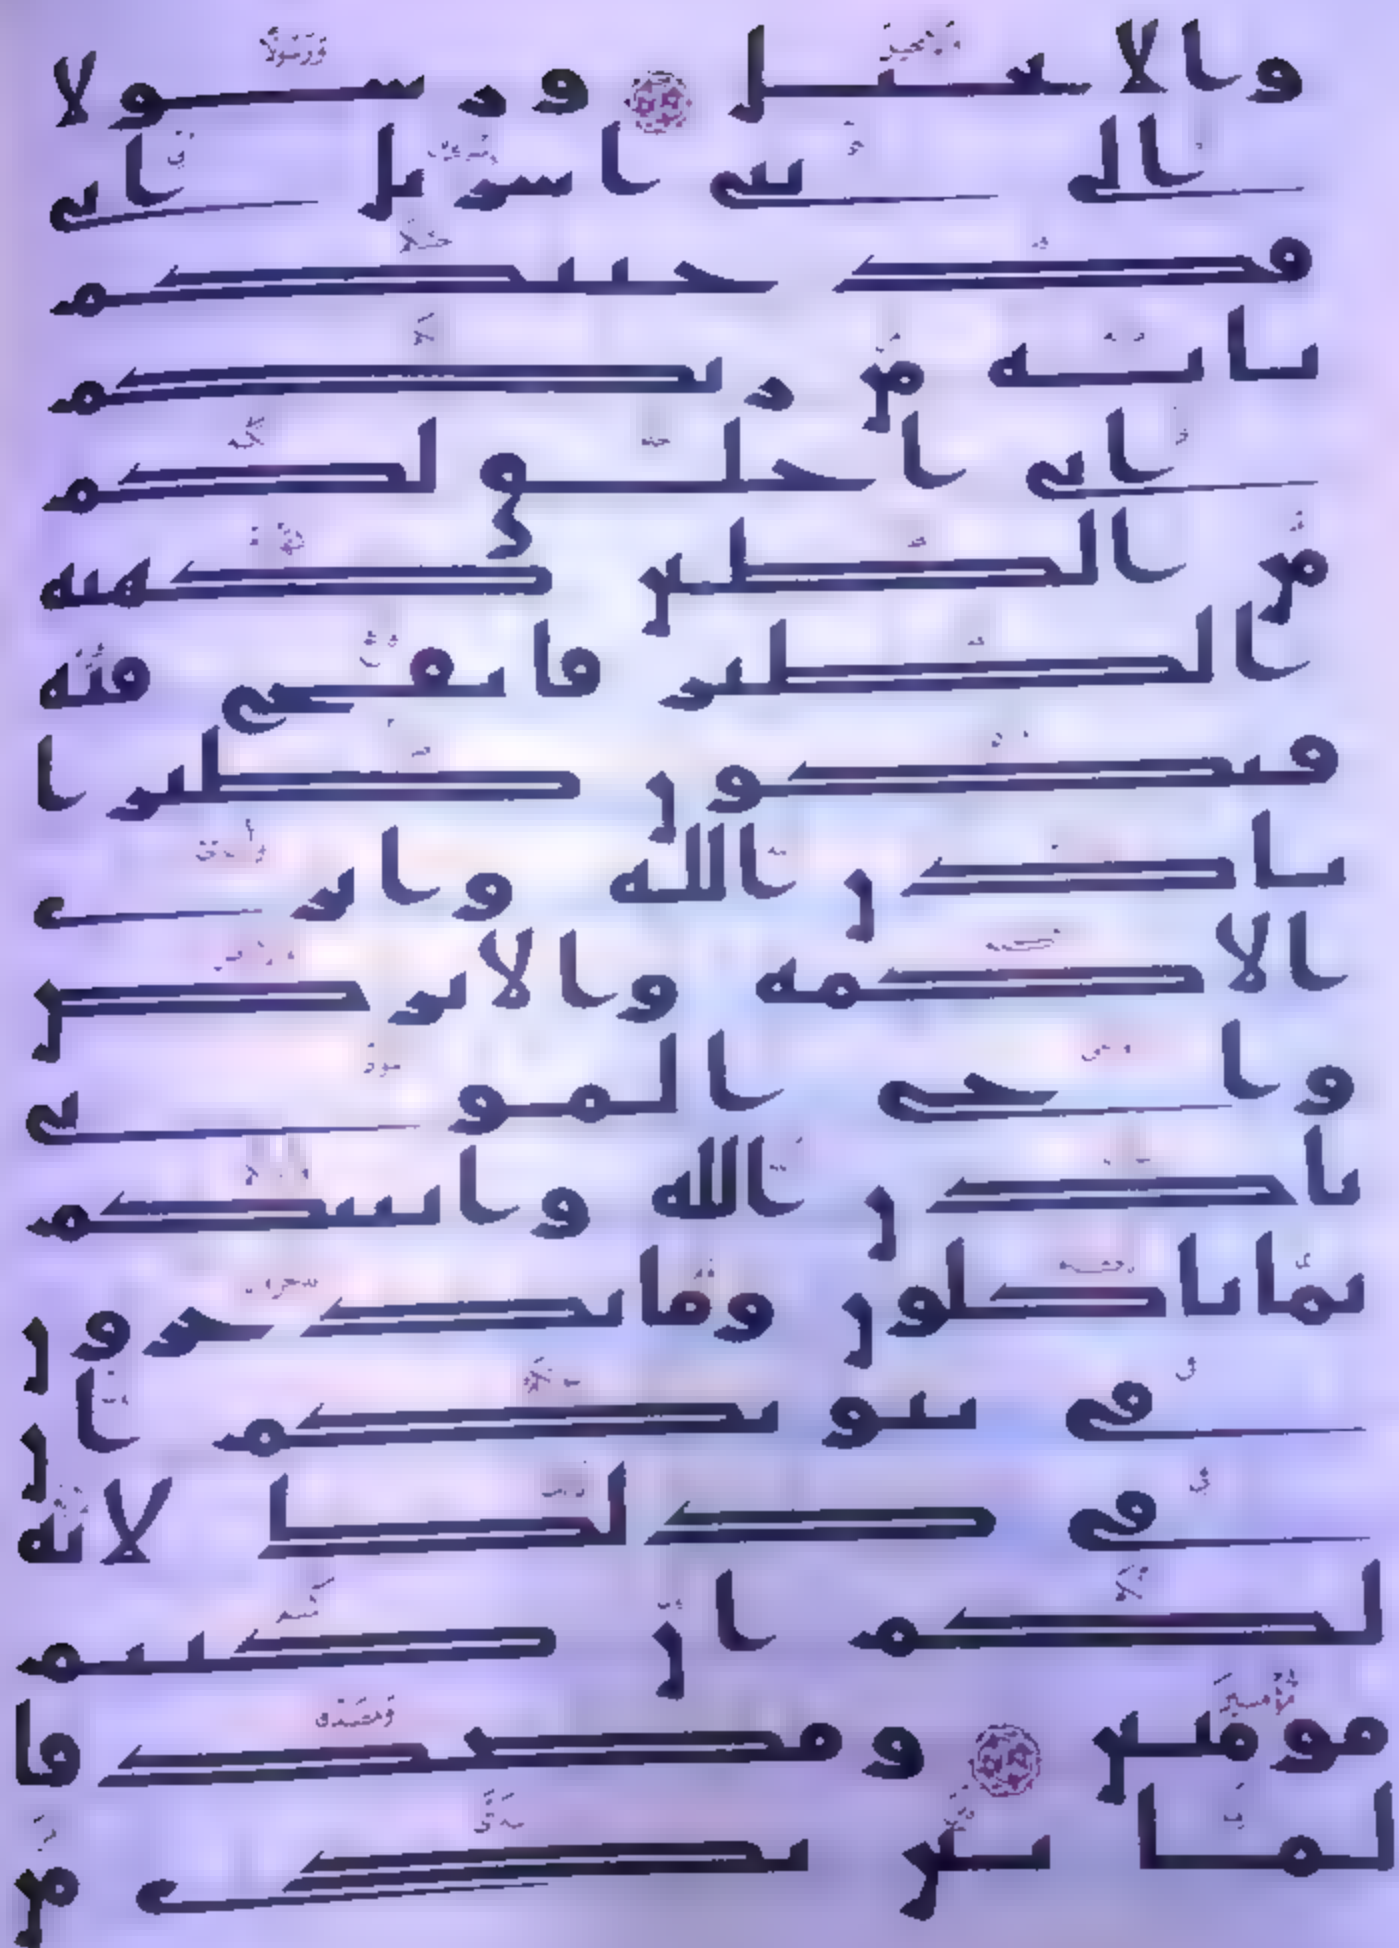 والانجيل ورسولا
الى بني اسريل اني
قد جيتكم
باية من ربكم
اني اخلق لكم
من الطين كهية
الطير فانفخ فيه
فيكون طيرا
باذن الله وابري
الاكمه والابرص
واحي الموتى
باذن الله وانبيكم
بما تاكلون وما تدخرون
في بيوتكم ان
في ذلك لاية
لكم ان كنتم
مومنين ومصدقا
لما بين يدي من